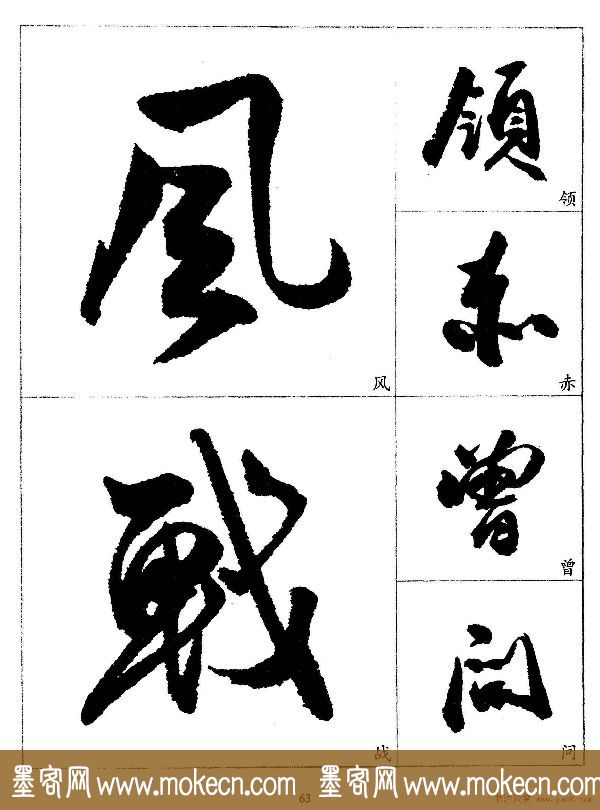 風
风
戰
战
領
领
赤
赤
曾
曾
問
问
墨客网 www.mokecn.com 墨客网 www.mokecn.com
63